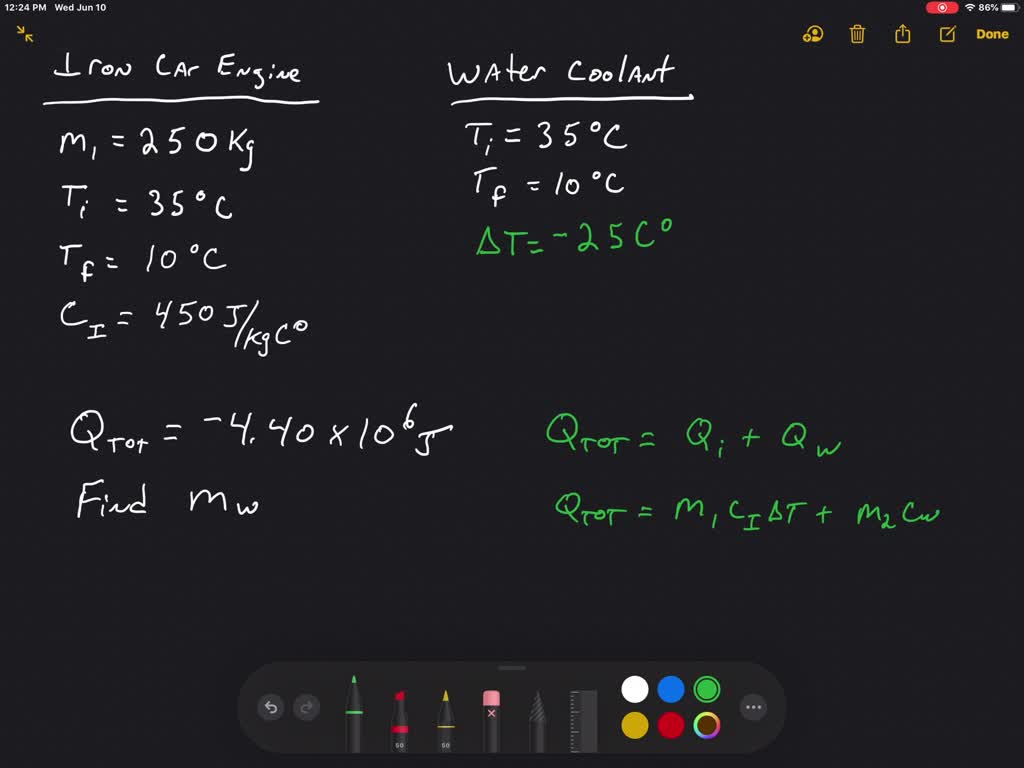 12:24 PM Wed Jun 10
86%
Done
Iron Car Engine
m₁ = 250 Kg
Tᵢ = 35°C
T_f = 10°C
C_I = 450 J/kgC°
Water Coolant
Tᵢ = 35°C
T_f = 10°C
ΔT = -25C°
Q_TOT = -4.40 x 10⁶ J
Find m_w
Q_TOT = Qᵢ + Q_w
Q_TOT = m₁ C_I ΔT + m₂ C_w
50
50